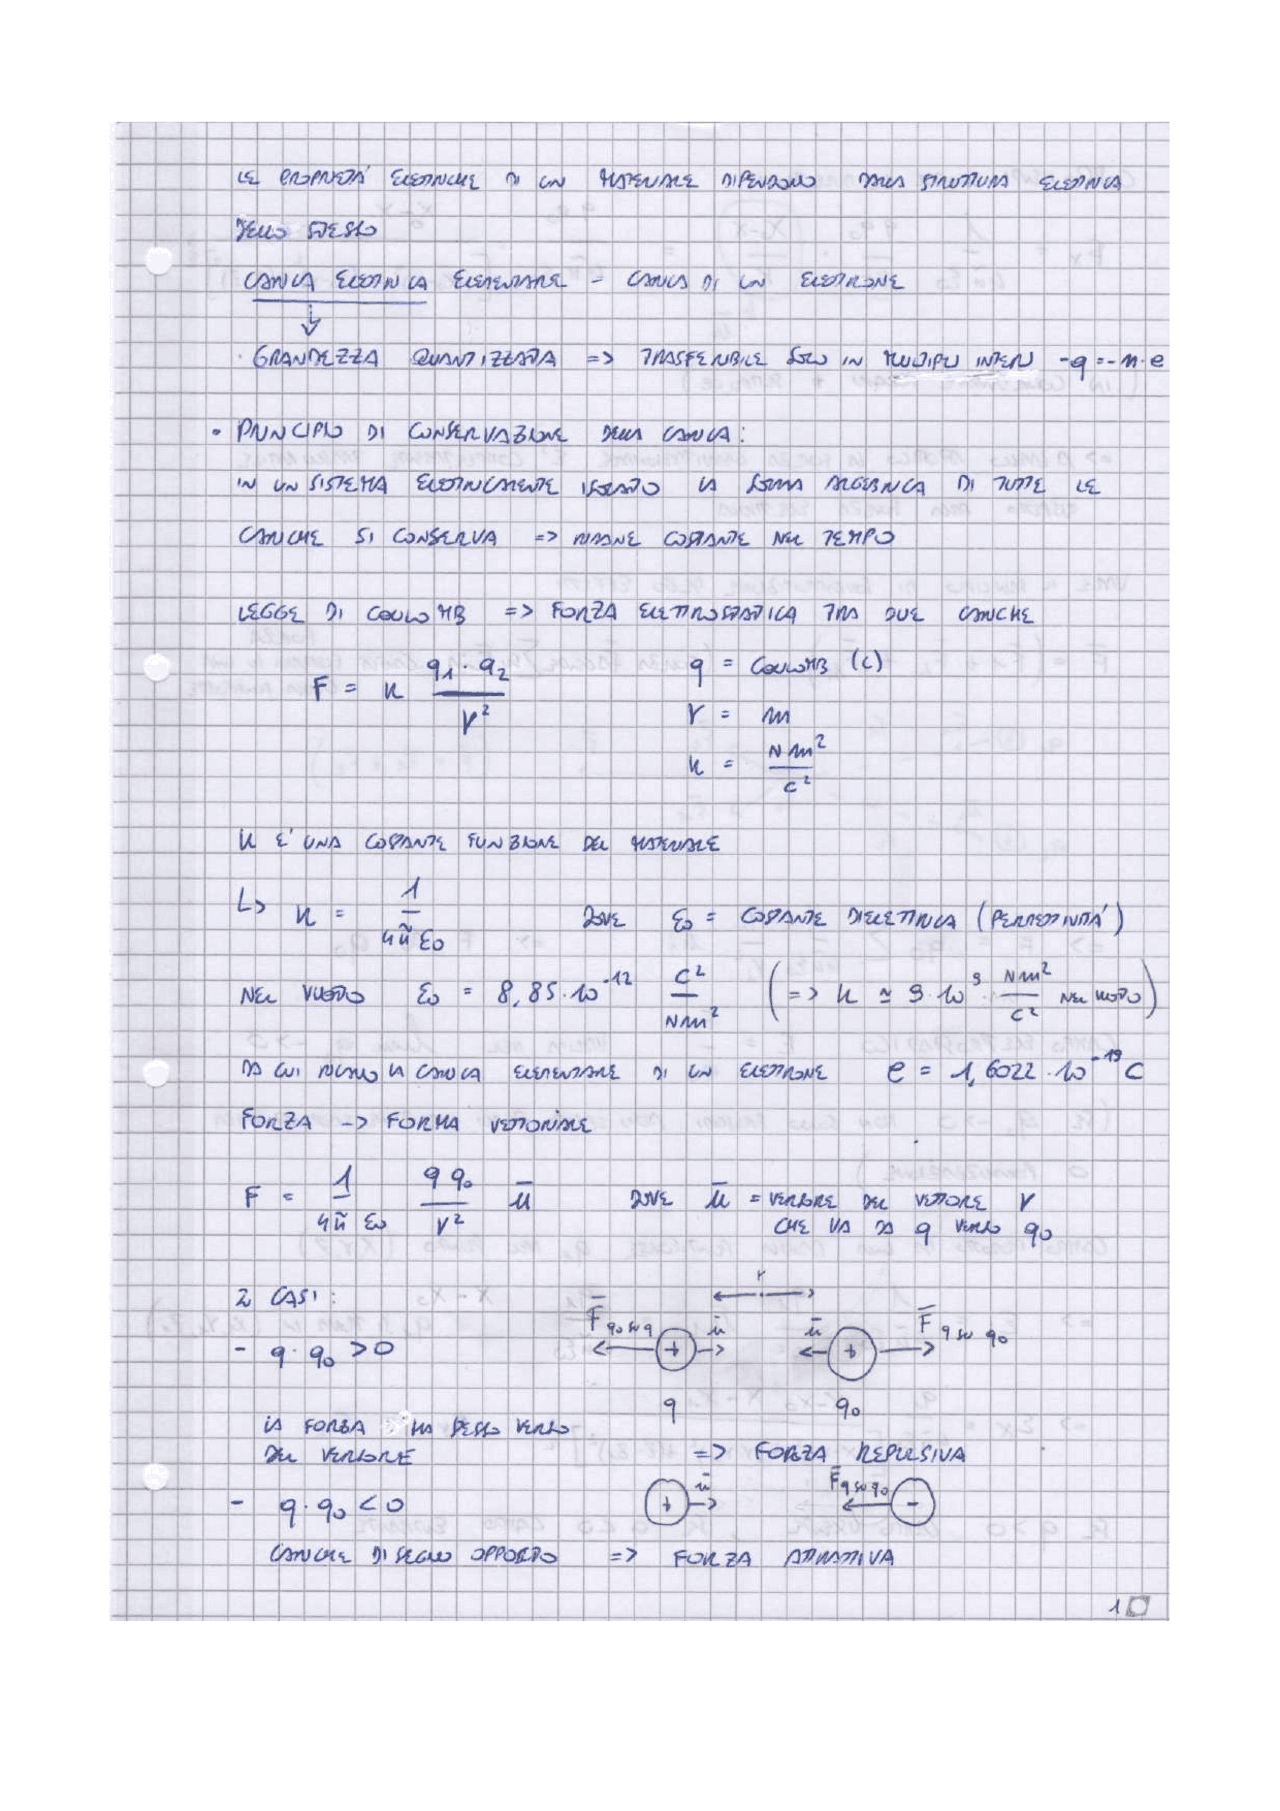 LE PROPRIETA' ELETTRICHE DI UN MATERIALE DIPENDONO DALLA STRUTTURA ELETTRICA
DELLO STESSO
CARICA ELETTRICA ELEMENTARE - CARICA DI UN ELETTRONE
↓
· GRANDEZZA QUANTIZZATA => TRASFERIBILE SOLO IN MULTIPLI INTERI -q = -n·e
• PRINCIPIO DI CONSERVAZIONE DELLA CARICA:
IN UN SISTEMA ELETTRICAMENTE ISOLATO LA SOMMA ALGEBRICA DI TUTTE LE
CARICHE SI CONSERVA => RIMANE COSTANTE NEL TEMPO
LEGGE DI COULOMB => FORZA ELETTROSTATICA TRA DUE CARICHE
F = K q1 · q2 / r²
q = COULOMB (C)
r = m
K = N m² / C²
K E' UNA COSTANTE FUNZIONE DEL MATERIALE
L> K = 1 / 4π ε0 DOVE ε0 = COSTANTE DIELETTRICA (PERMETTIVITÀ)
NEL VUOTO ε0 = 8,85 · 10⁻¹² C² / N m² (=> K ≃ 9 · 10⁹ · N m² / C² NEL VUOTO)
DA CUI RICAVO LA CARICA ELEMENTARE DI UN ELETTRONE e = 1,6022 · 10⁻¹⁹ C
FORZA -> FORMA VETTORIALE
F = 1 / 4π ε0 q q0 / r² ū DOVE ū = VERSORE DEL VETTORE r
CHE VA DA q VERSO q0
2 CASI:
r
- q · q0 > 0 F̄ q0 su q + ū ū + F̄ q su q0
q q0
LA FORZA HA STESSO VERSO
DEL VERSORE => FORZA REPULSIVA
- q · q0 < 0 + ū F̄ q su q0 -
CARICHE DI SEGNO OPPOSTO => FORZA ATTRATTIVA
1